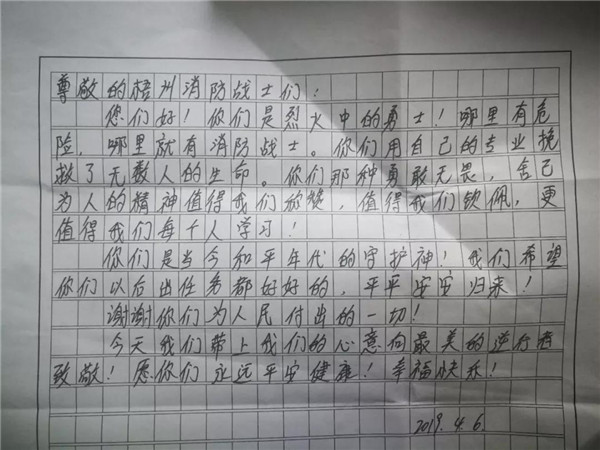 尊敬的梧州消防战士们：
您们好！你们是烈火中的勇士！哪里有危
险，哪里就有消防战士。你们用自己的专业挽
救了无数人的生命。你们那种勇敢无畏，舍己
为人的精神值得我们放赞，值得我们钦佩，更
值得我们每个人学习！
你们是当今和平年代的守护神！我们希望
你们以后出任务都好好的，平平安安归来！
谢谢你们为人民付出的一切！
今天我们带上我们的心意向最美的逆行者
致敬！愿你们永远平安健康！幸福快乐！
2019.4.6